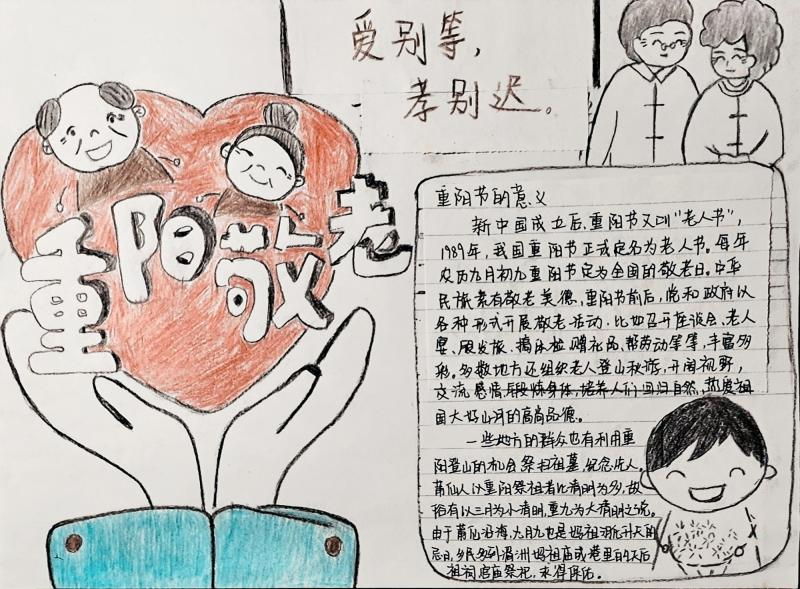 爱别等，
孝别迟。
重阳敬老
重阳节的意义
新中国成立后，重阳节又叫“老人节”，
1989年，我国重阳节正式定名为老人节。每年
农历九月初九重阳节定为全国的敬老日。中华
民族素有敬老美德，重阳节前后，党和政府以
各种形式开展敬老活动，比如召开座谈会、老人
宴、展发旅、搞体检赠礼品、帮劳动等等，丰富多
彩。多数地方还组织老人登山秋游，开阔视野，
交流感情，锻炼身体，培养人们回归自然，热爱祖
国大好山河的高尚品德。
一些地方的群众也有利用重
阳登山的机会祭扫祖墓，纪念先人。
莆仙人以重阳祭祖者比清明为多，故
俗有以三月为小清明，重九为大清明之说。
由于莆仙沿海，九月九也是妈祖羽化升天的
忌日，乡民多到湄洲妈祖庙或港里的天后
祖祠、宫庙祭祀，求得保佑。